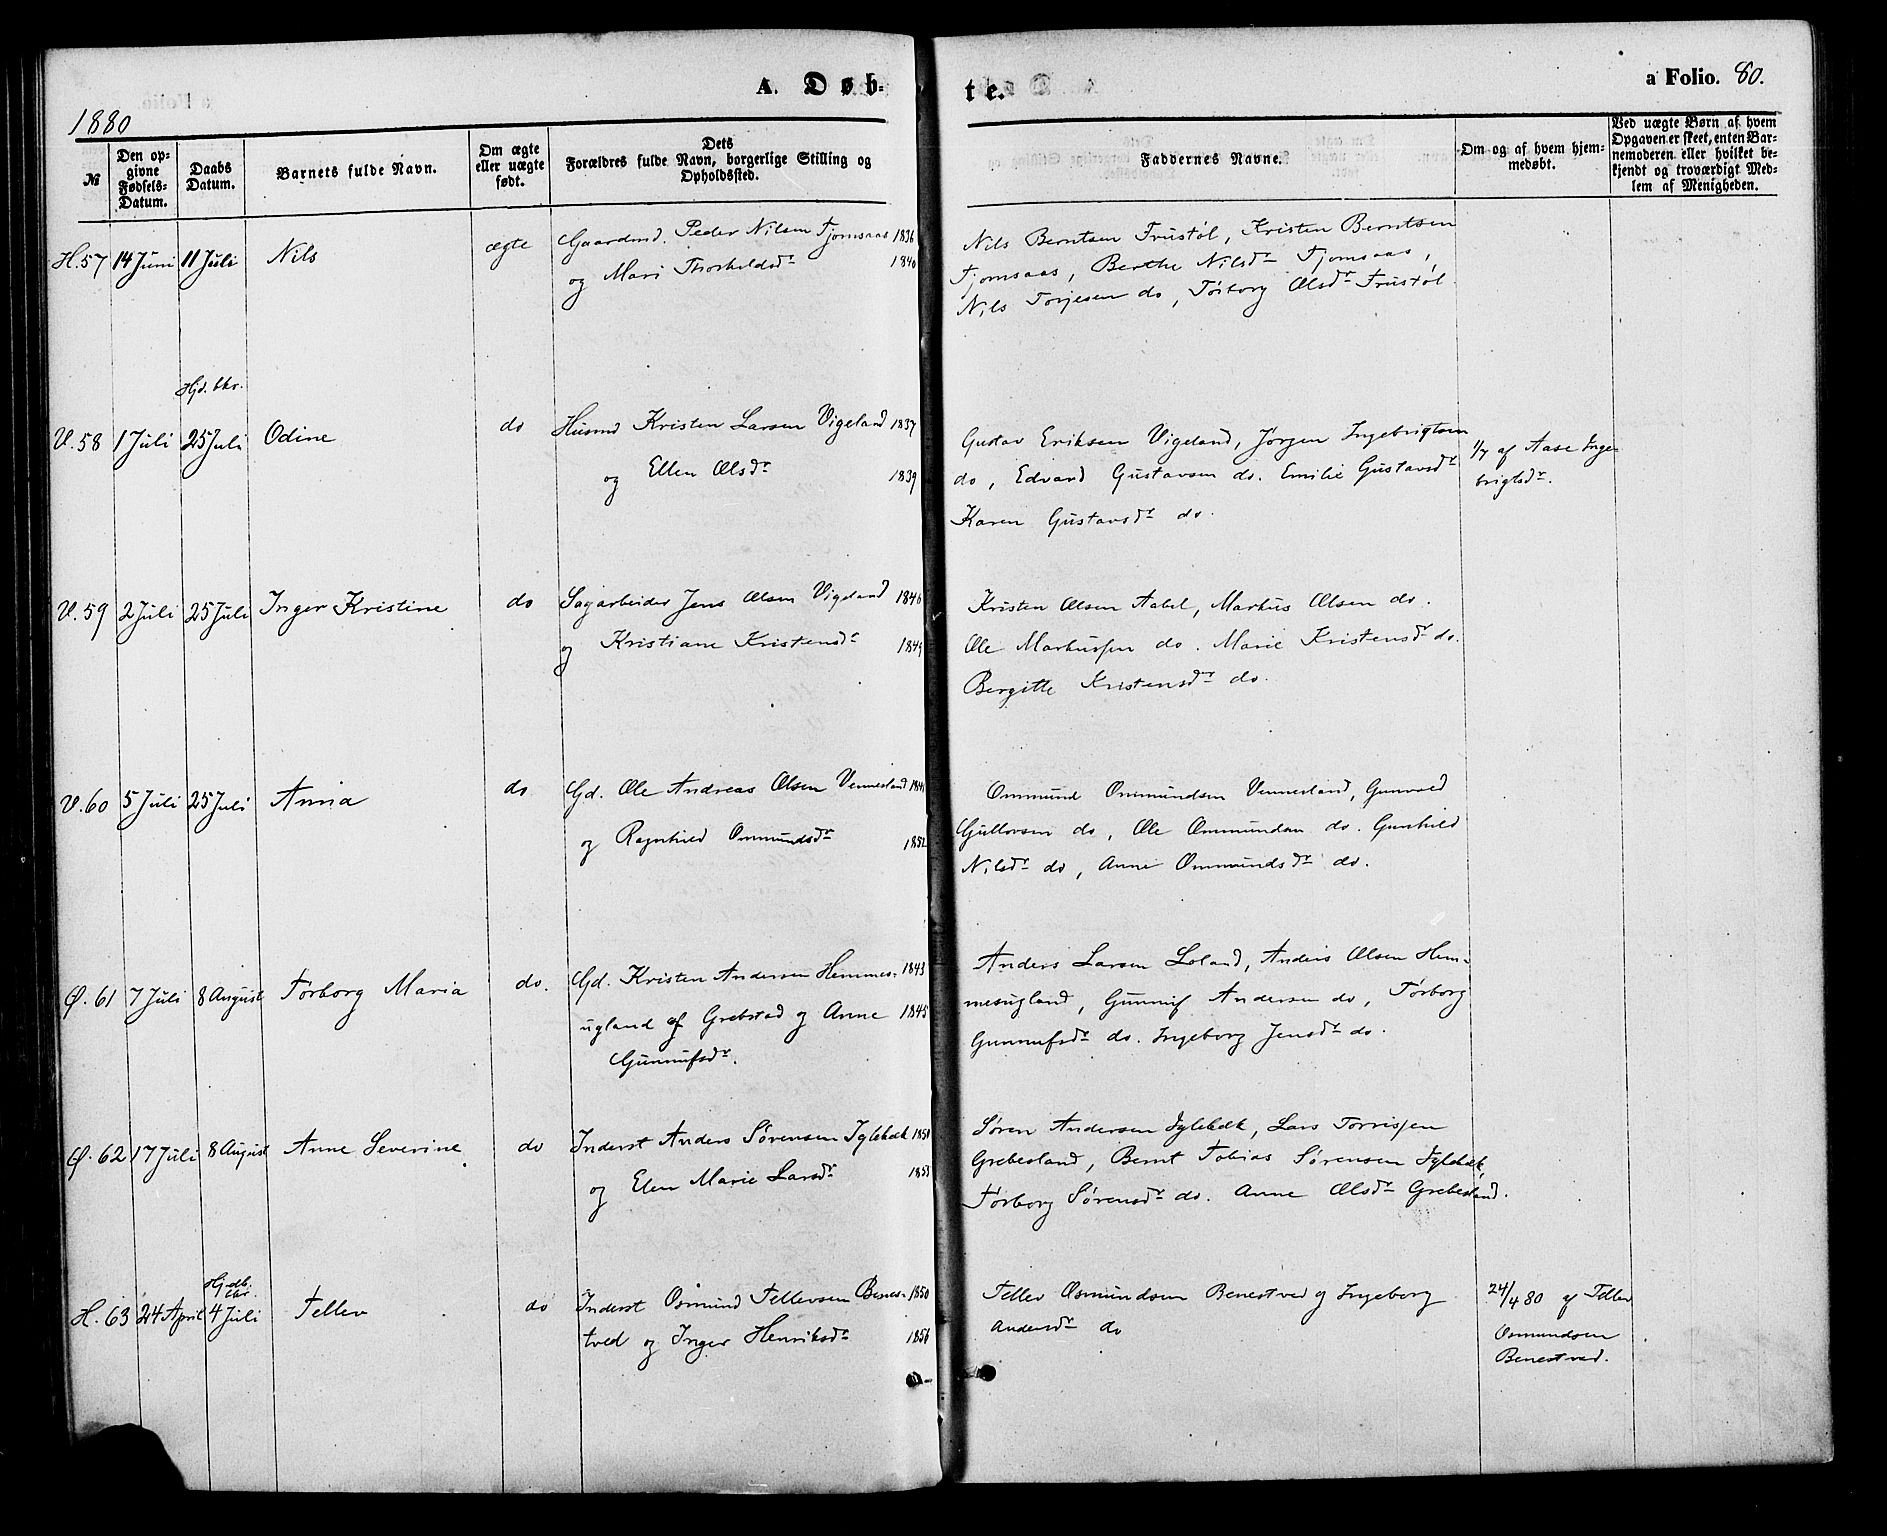 A. Døb-
te.
a Folio. 80.
1880
№
Den op-
givne
Fødsels-
Datum.
Daabs
Datum.
Barnets fulde Navn.
Om ægte
eller uægte
født.
Dets
Forældres fulde Navn, borgerlige Stilling og
Opholdssted.
Faddernes Navne.
Om og af hvem hjem-
medøbt.
Ved uægte Børn af hvem
Opgaven er skeet, enten Bar-
nemoderen eller hvilket be-
kjendt og troværdigt Med-
lem af Menigheden.
H.57 14 Juni 11 Juli Nils ægte Gaardmd. Peder Nilsen Fjomsaas 1836
og Mari Thorkeldsdr 1840
Nils Berntsen Trustøl, Kristen Berntsen
Fjomsaas, Berthe Nilsdr Fjomsaas,
Nils Torjesen do, Tørborg Olsdr Trustøl.
Hjd. bkr.
V.58 1 Juli 25 Juli Odine do Husmd Kristen Larsen Vigeland 1837
og Ellen Olsdr 1839
Gustav Eriksen Vigeland, Jørgen Ingebrigtsen
do, Edvard Gustavsen do. Emilie Gustavsdr
Karen Gustavsdr do.
1/7 af Aase Inge-
brigtsdr.
V.59 2 Juli 25 Juli Inger Kristine do Sagarbeider Jens Olsen Vigeland 1846
og Kristiane Kristensdr 1849
Kristen Olsen Aabel, Markus Olsen do.
Ole Markussen do. Marie Kristensdr do.
Bergitte Kristensdr do.
V.60 5 Juli 25 Juli Anna do Gd. Ole Andreas Olsen Vennesland
og Ragnhild Ommundsdr 1852
Ommund Ommundsen Vennesland, Gunvald
Gullovsen do, Ole Ommundsen do. Gunhild
Nilsdr do, Anne Ommundsdr do.
Ø.61 7 Juli 8 August Torborg Maria do. Gd. Kristen Andersen Hemmes- 1843
ugland af Grebstad og Anne 1845
Gunnufsdr.
Anders Larsen Loland, Anders Olsen Hem-
mesugland, Gunnuf Andersen do, Tørborg
Gunnufsdr do. Ingeborg Jensdr do.
Ø.62 17 Juli 8 August Anne Severine do Inderst Anders Sørensen Iglebæk
og Elen Marie Larsdr 1853
Søren Andersen Iglebæk, Lars Torrissen
Grebesland, Bernt Tobias Sørensen Iglebæk,
Tørborg Sørensdr do. Anne Olsdr Grebesland.
Hjdb.
bkr.
H.63 24 April 4 Juli Tellev do Inderst Osmund Tellevsen Benes- 1850
tved og Inger Henriksdr 1856
Tellev Osmundsen Benestved og Ingeborg
Andersdr do
24/4 80 af Tellev
Osmundsen
Benestved.